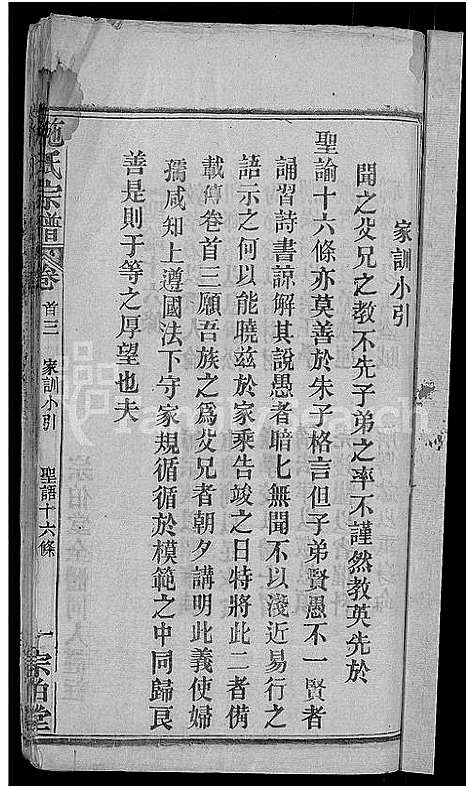 家訓小引
聞之父兄之教不先子弟之率不謹然教莫先於
聖諭十六條亦莫善於朱子格言但子弟賢愚不一賢者
誦習詩書諒解其說愚者暗七無聞不以淺近易行之
語示之何以能曉兹於家乘告竣之日特將此二者備
載傳卷首三願吾族之爲父兄者朝夕講明此義使婦
孺咸知上遵國法下守家規循循於模範之中同歸良
善是則于等之厚望也夫
施氏宗譜 卷首三 家訓小引 聖諭十六條 一 宗伯堂
FamilySearch